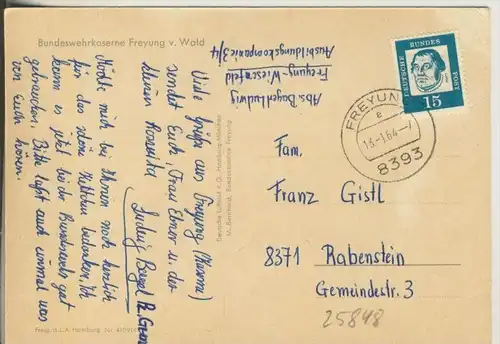 Bundeswehrkaserne Freyung v. Wald
Abs. Bagel Ludwig
Freyung-Wiesenfeld
Ausbildungskompanie 3/4
Viele Grüße aus Freyung (Kaserne)
sendet Euch, Frau Ebner u. der
kleinen Roswitha
Ludwig Bagel
Möchte mich bei Ihnen noch herzlich
für das schöne Kettchen bedanken. Ich
kann es jetzt bei der Bundeswehr gut
gebrauchen. Bitte laßt auch einmal was
von Euch hören.
DEUTSCHE BUNDESPOST
15
FREYUNG
e
13.-1.64.-7
8393
Fam.
Franz Gistl
8371 Rabenstein
Gemeindestr. 3
25848